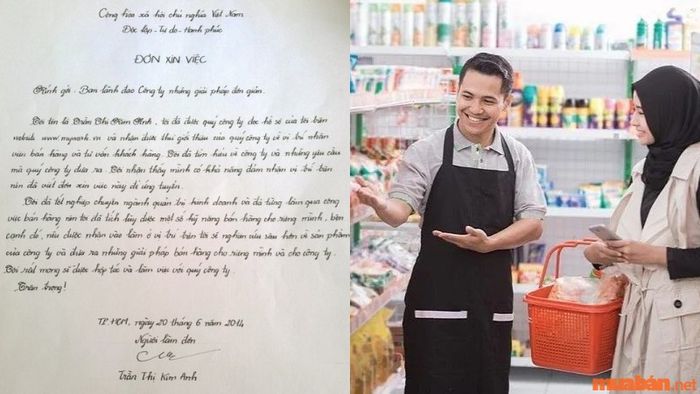 Cộng hòa xã hội chủ nghĩa Việt Nam
Độc lập - Tự do - Hạnh phúc
ĐƠN XIN VIỆC
Kính gởi: Ban lãnh đạo Công ty những giải pháp đơn giản.
Tôi tên là Trần Thị Kim Anh, tôi đã được quý công ty đọc hồ sơ của tôi trên
website www.mywork.vn và nhận được thư giới thiệu vào quý công ty về vị trí nhân
viên bán hàng và tư vấn khách hàng. Tôi đã tìm hiểu về công ty và những yêu cầu
mà quý công ty đưa ra. Tôi nhận thấy mình có khả năng đảm nhận vị trí trên
nên đã viết đơn xin việc này để ứng tuyển.
Tôi đã tốt nghiệp chuyên ngành quản trị kinh doanh và đã từng làm qua công
việc bán hàng nên tôi đã tích lũy được một số kỹ năng bán hàng cho riêng mình, bên
cạnh đó, nếu được nhận vào làm ở vị trí trên tôi sẽ nghiên cứu sâu hơn về sản phẩm
của công ty và đưa ra những giải pháp bán hàng cho riêng mình và cho công ty.
Tôi rất mong sẽ được hợp tác và làm việc với quý công ty.
Trân trọng!
TP.HCM, ngày 20 tháng 6 năm 2014
Người làm đơn
Trần Thị Kim Anh
muaban.net